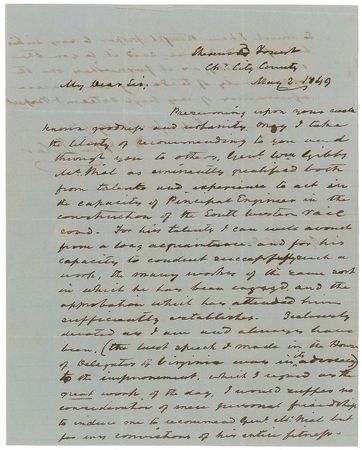 Sherwood Forest
Chs. City County
May 2. 1849
My Dear Sir,
Presuming upon your well
known goodness and urbanity may I take
the liberty of recommending to you and
through you to others, Genl. Wm. Gibbs
McNeil as eminently qualified both
from talents and experience to act in
the capacity of Principal Engineer in the
construction of the South Western rail
road. For his talents I can well avouch
from a long acquaintance and for his
capacity to conduct successfully such a
work, the many works of the same sort
in which he has been engaged and the
approbation which has attended him
sufficiently establishes. Zealously
devoted as I am and always have
been, (the best speech I made in the House
of Delegates of Virginia was in its advocacy)
to the improvement, which I regard as the
great work of the day, I would suffer no
consideration of mere personal friendship
to induce me to recommend Genl. McNeil but
for my convictions of his entire fitness.